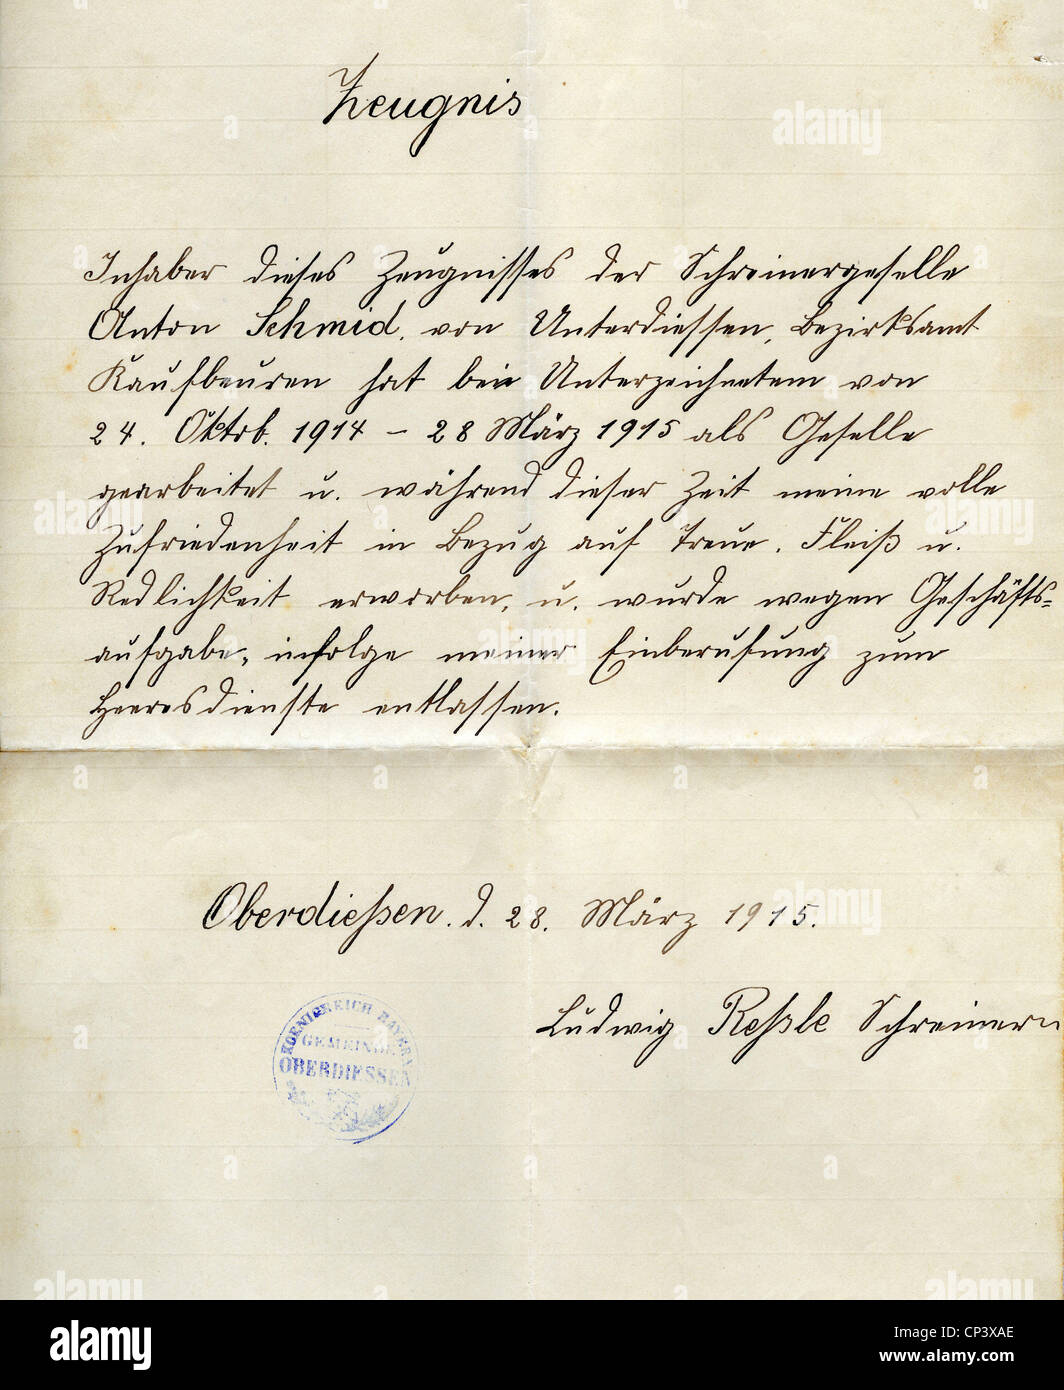 Zeugnis
Inhaber dieses Zeugnisses der Schreinergeselle
Anton Schmid, von Unterdiessen, Bezirksamt
Kaufbeuren hat bei Unterzeichnetem von
24. Oktob. 1914 – 28 März 1915 als Geselle
gearbeitet u. während dieser Zeit meine volle
Zufriedenheit in Bezug auf Treue, Fleiß u.
Redlichkeit erworben, u. wurde wegen Geschäfts-
aufgabe, infolge meiner Einberufung zum
Heeresdienste entlassen.
Oberdießen. d. 28. März 1915.
Ludwig Schreinerm
KOENIGREICH BAYERN
GEMEINDE
OBERDIESSEN
alamy
Image ID: CP3XAE
www.alamy.com